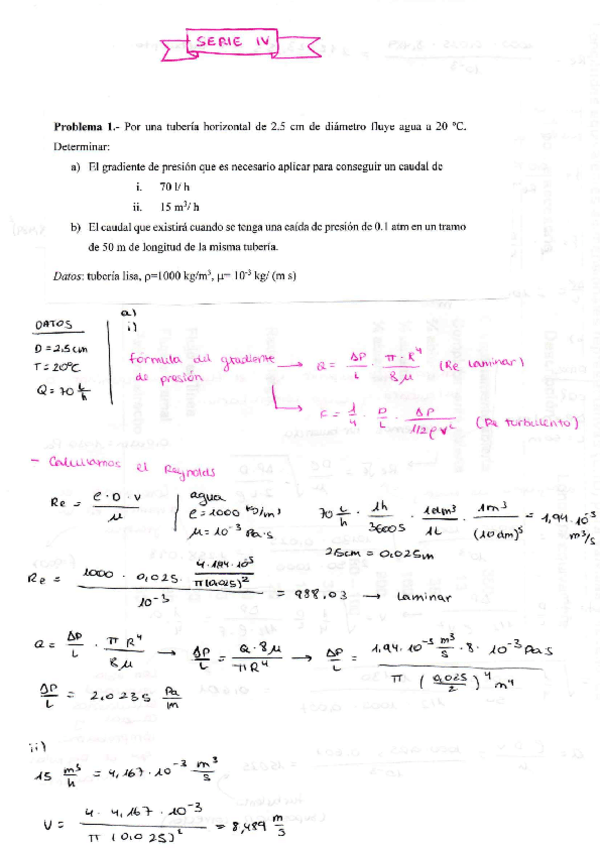 SERIE IV
Problema 1.- Por una tubería horizontal de 2.5 cm de diámetro fluye agua a 20 ºC.
Determinar:
a) El gradiente de presión que es necesario aplicar para conseguir un caudal de
i. 70 l/ h
ii. 15 m³/ h
b) El caudal que existirá cuando se tenga una caída de presión de 0.1 atm en un tramo
de 50 m de longitud de la misma tubería.
Datos: tubería lisa, ρ=1000 kg/m³, μ= 10⁻³ kg/ (m s)
DATOS
D = 2.5 cm
T = 20ºC
Q = 70 L/h
a)
i)
fórmula del gradiente de presión → Q = ΔP/L · π·R⁴/8μ (Re laminar)
↳ F = 1/4 · D/L · ΔP/(1/2 ρ v²) (Re turbulento)
- Calculamos el Reynolds
Re = ρ·D·V/μ
agua
ρ = 1000 kg/m³
μ = 10⁻³ Pa·s
70 L/h · 1h/3600s · 1dm³/1L · 1m³/(10dm)³ = 1,94·10⁻⁵ m³/s
25cm = 0,025m
Re = (1000 · 0,025 · (4·1,94·10⁻⁵)/(π(0,025)²))/10⁻³ = 988,03 → laminar
Q = ΔP/L · πR⁴/8μ → ΔP/L = Q·8μ/πR⁴ → ΔP/L = (1,94·10⁻⁵ m³/s · 8 · 10⁻³ Pa s)/(π (0,025/2)⁴ m⁴)
ΔP/L = 2,0235 Pa/m
ii)
15 m³/h = 4,167·10⁻³ m³/s
V = (4 · 4,167·10⁻³)/(π(0,025)²) = 8,489 m/s